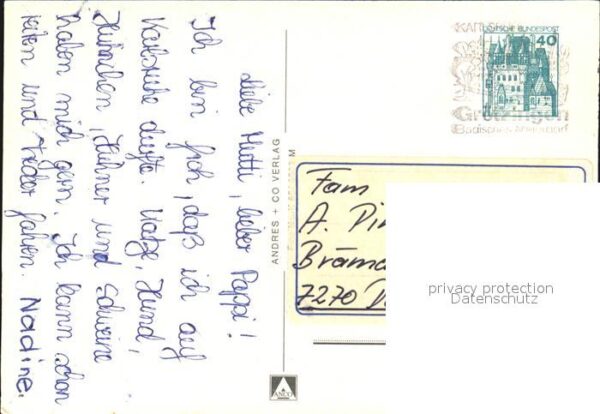 Liebe Mutti, lieber Pappi!
Ich bin froh, daß ich auf
Karlsruhe durfte. Katze, Hund,
Hühner und Schweine
haben mich gern. Ich kann schon
reiten und Fahren. Nadine.
ANDRES + CO VERLAG
ANCO
DEUTSCHE BUNDESPOST
40
Grötzingen
Badisches Malerdorf
Fam
A.
7270
privacy protection
Datenschutz